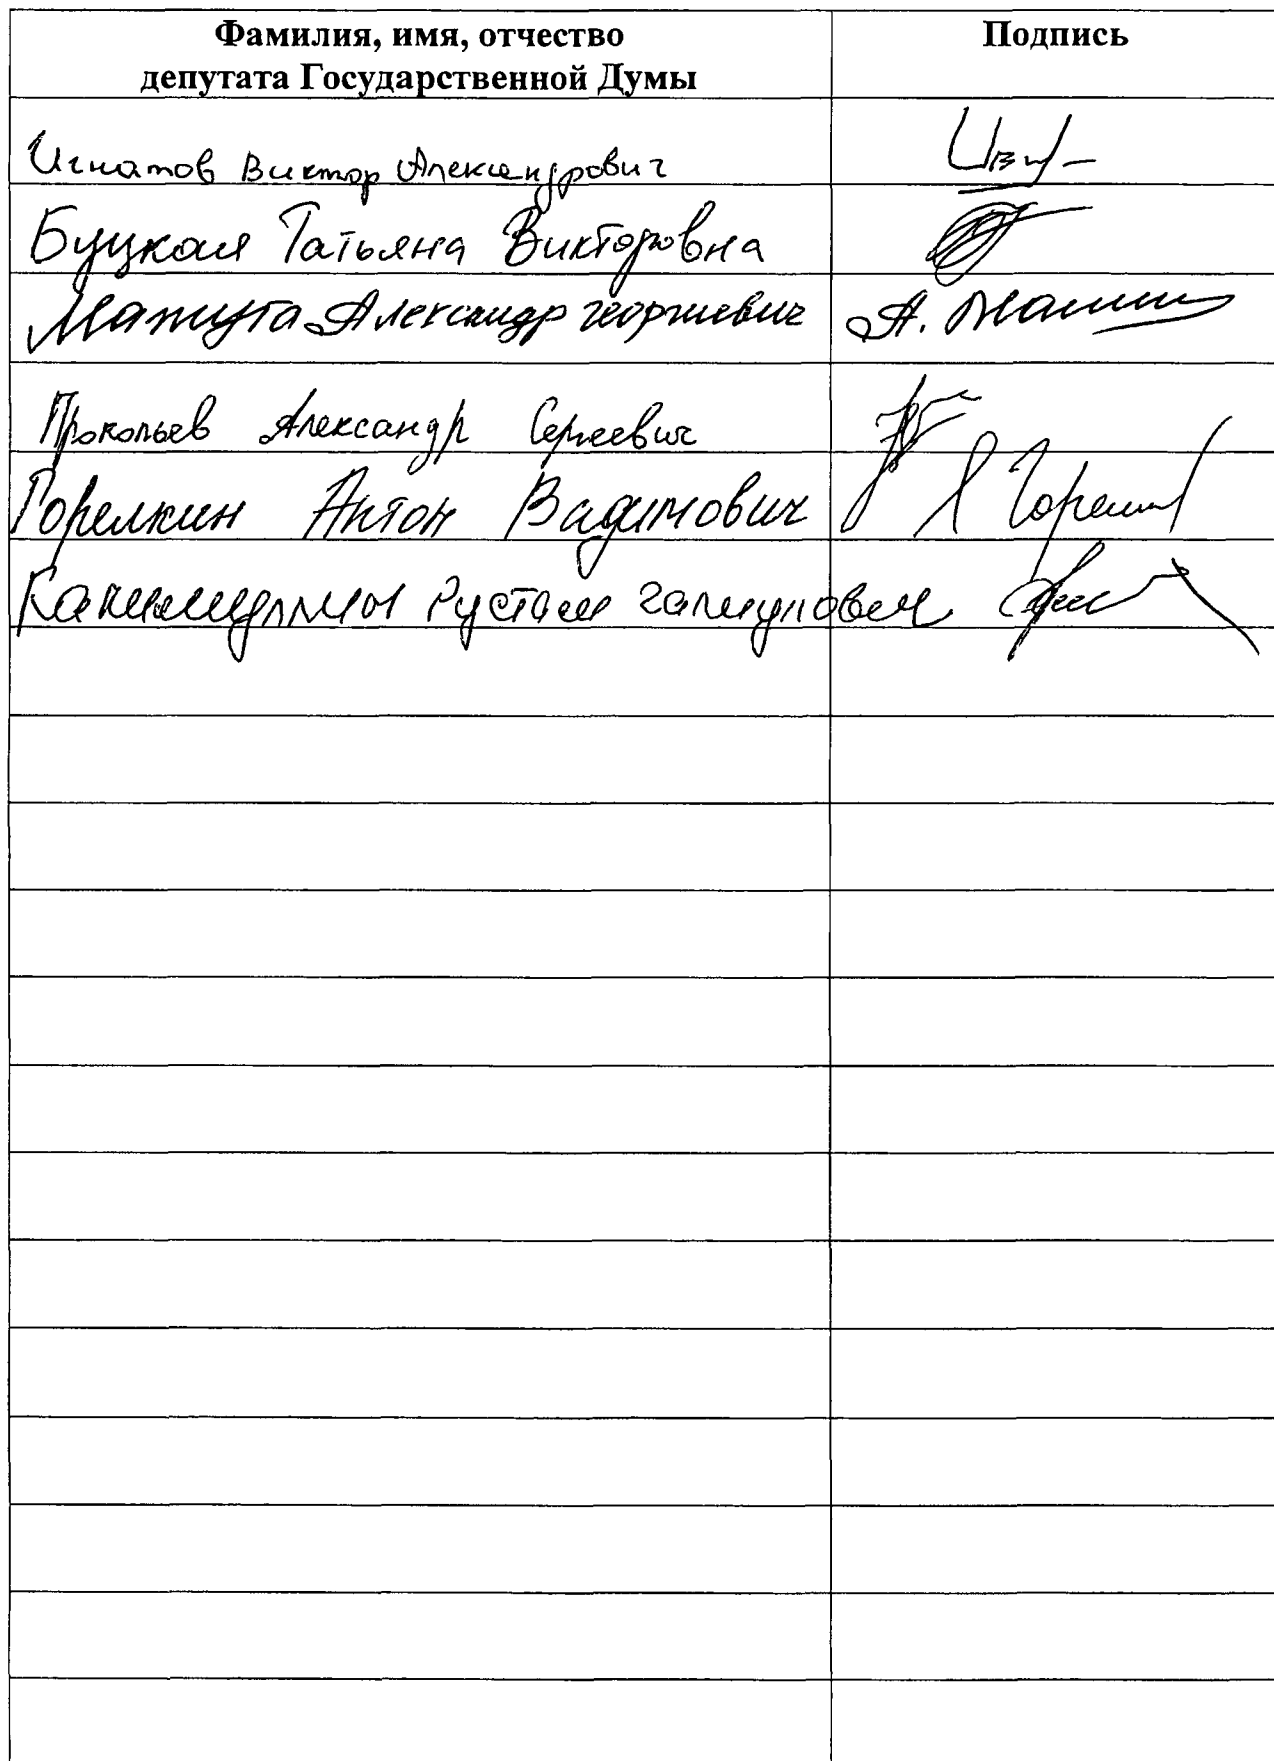 Фамилия, имя, отчество
депутата Государственной Думы
Подпись
Игнатов Виктор Александрович
Буцкая Татьяна Викторовна
Мажуга Александр Георгиевич А. Мажуг
Прокопьев Александр Сергеевич
Горелкин Антон Вадимович
Рустам